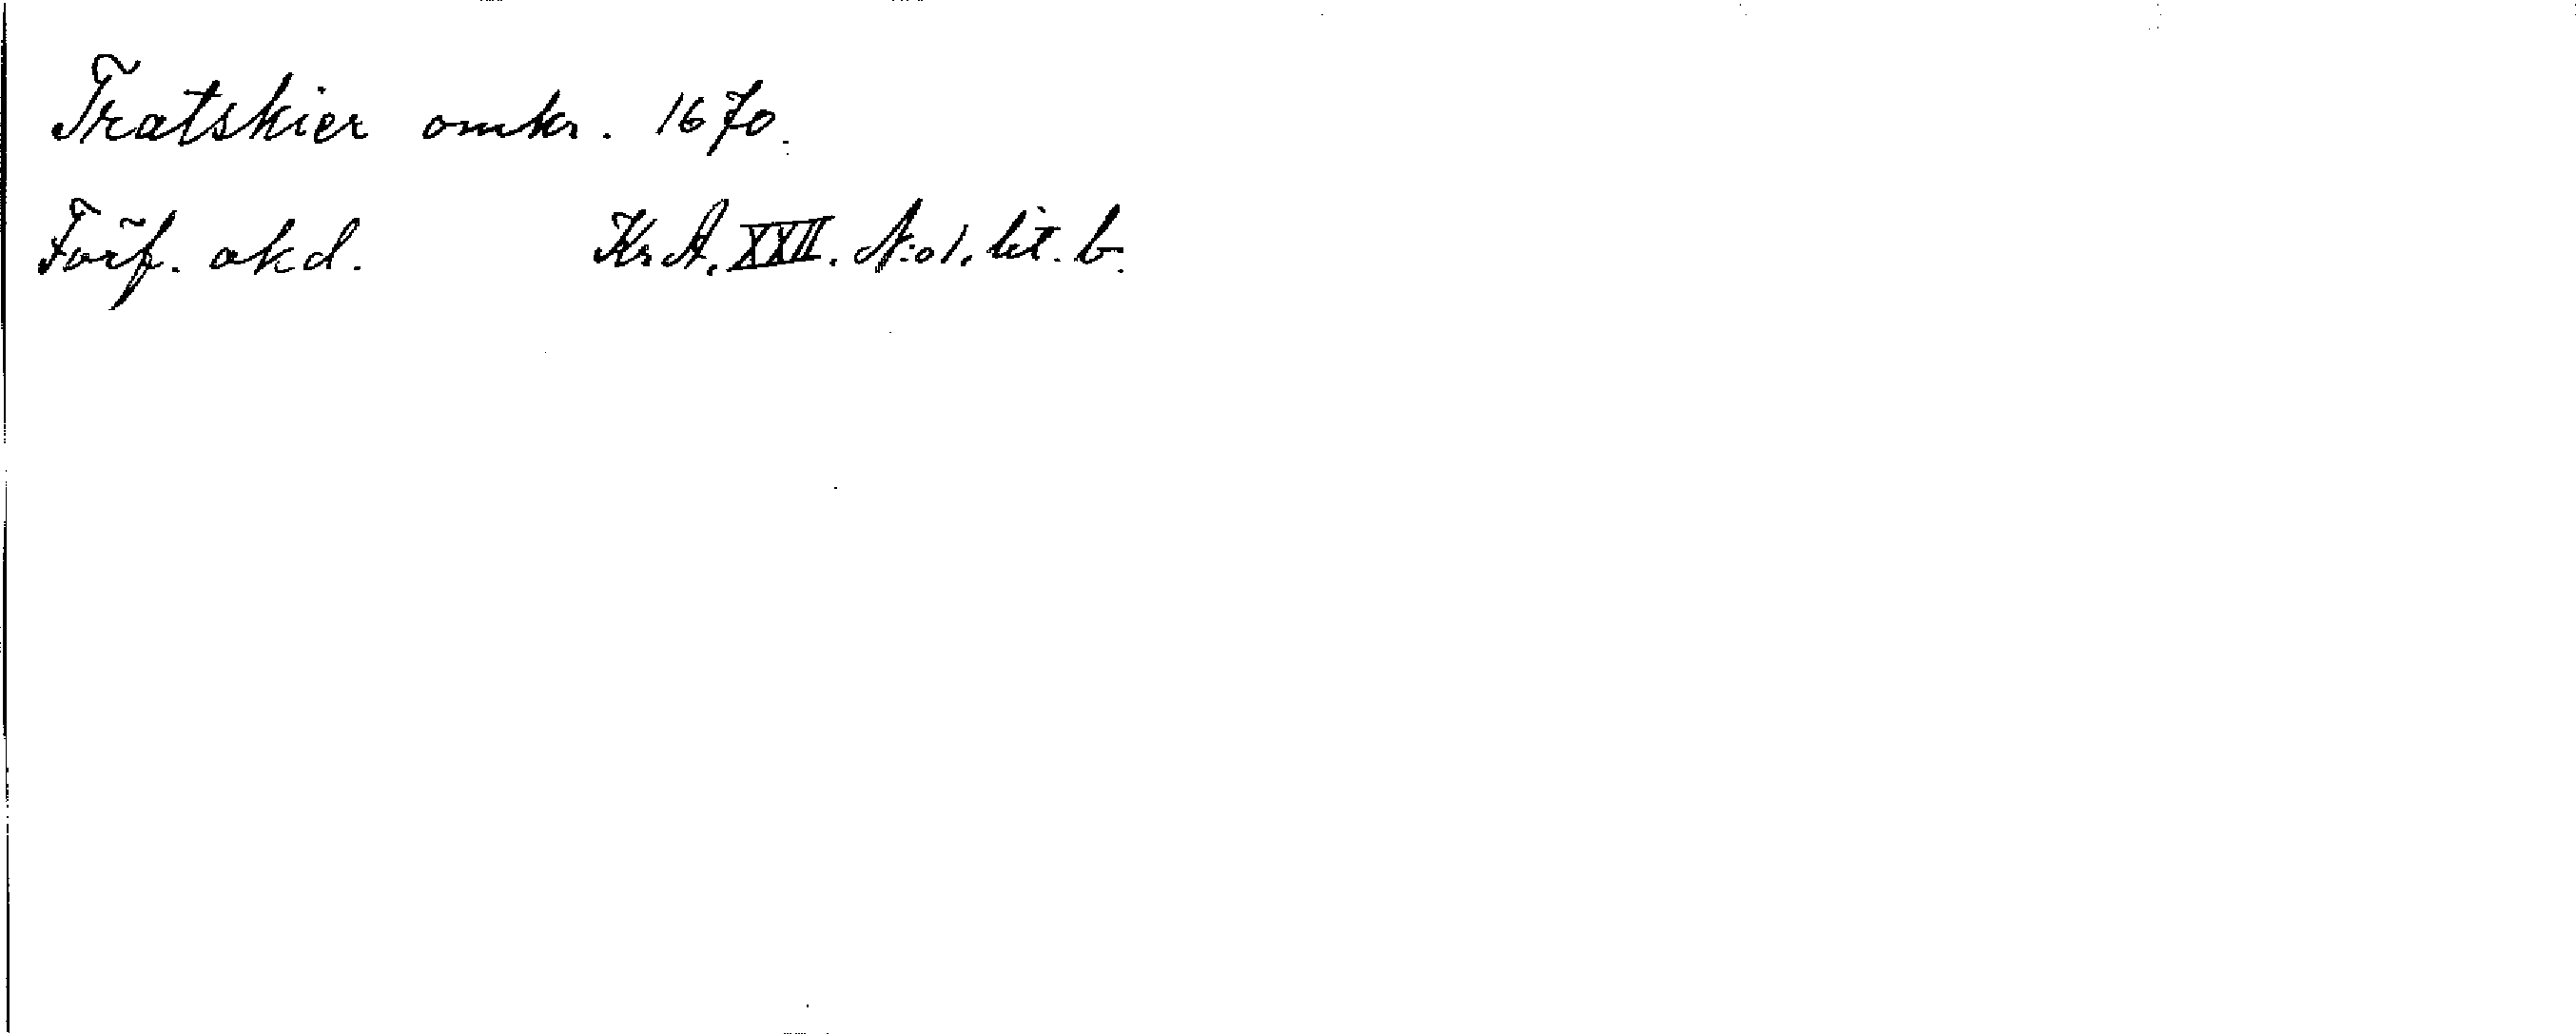 Tratskier omkr. 1670.
Förf. okd. Kr. A. XXII. N:o 1. lit. b.